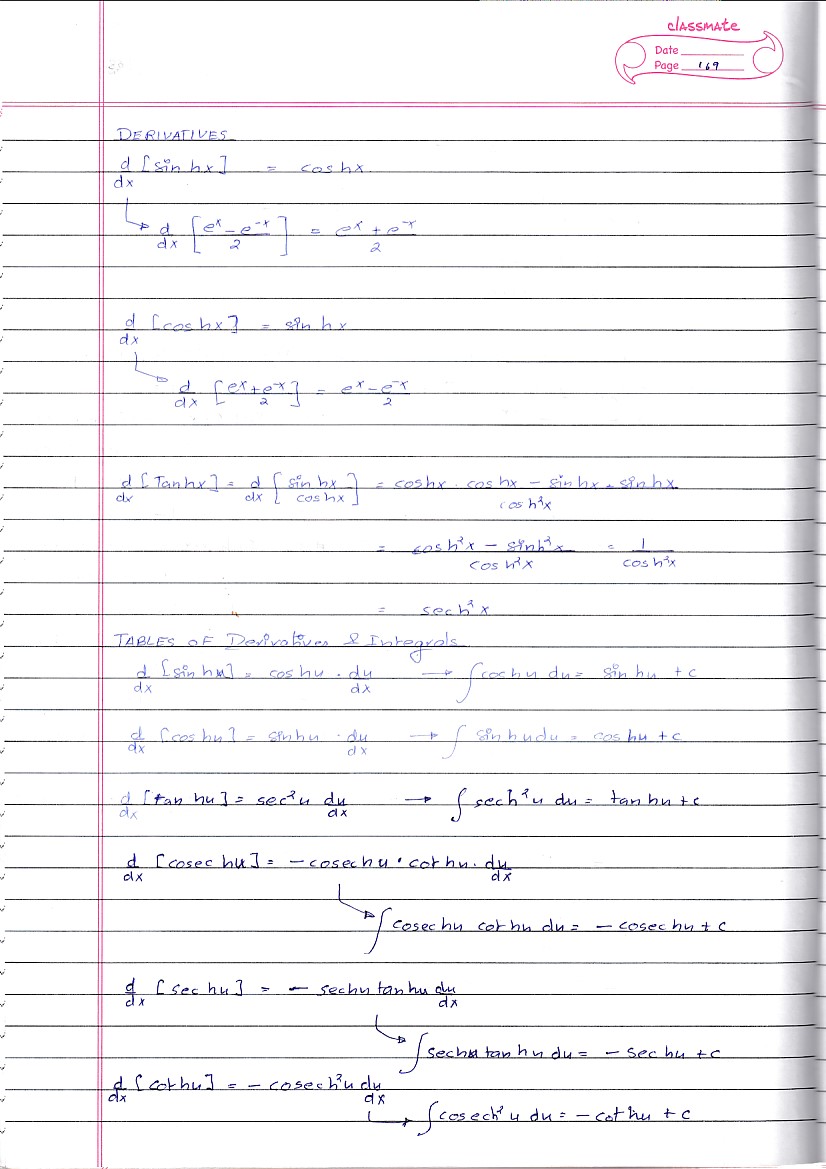 classmate
Date
Page 169
DERIVATIVES
d/dx [sin hx] = cos hx
d/dx [(e^x - e^-x)/2] = (e^x + e^-x)/2
d/dx [cos hx] = sin hx
d/dx [(e^x + e^-x)/2] = (e^x - e^-x)/2
d/dx [Tan hx] = d/dx [sin hx / cos hx] = (cos hx . cos hx - sin hx . sin hx) / cos h²x
= (cos h²x - sin h²x) / cos h²x = 1 / cos h²x
= sec h²x
TABLES OF Derivatives & Integrals
d/dx [sin hu] = cos hu . du/dx → ∫ cos hu du = sin hu + c
d/dx [cos hu] = sin hu . du/dx → ∫ sin hu du = cos hu + c
d/dx [tan hu] = sec²u du/dx → ∫ sec h²u du = tan hu + c
d/dx [cosec hu] = - cosec hu . cot hu . du/dx
∫ cosec hu cot hu du = - cosec hu + c
d/dx [sec hu] = - sec hu tan hu du/dx
∫ sec hu tan hu du = - sec hu + c
d/dx [cot hu] = - cosec h²u du/dx
∫ cosec h²u du = - cot hu + c